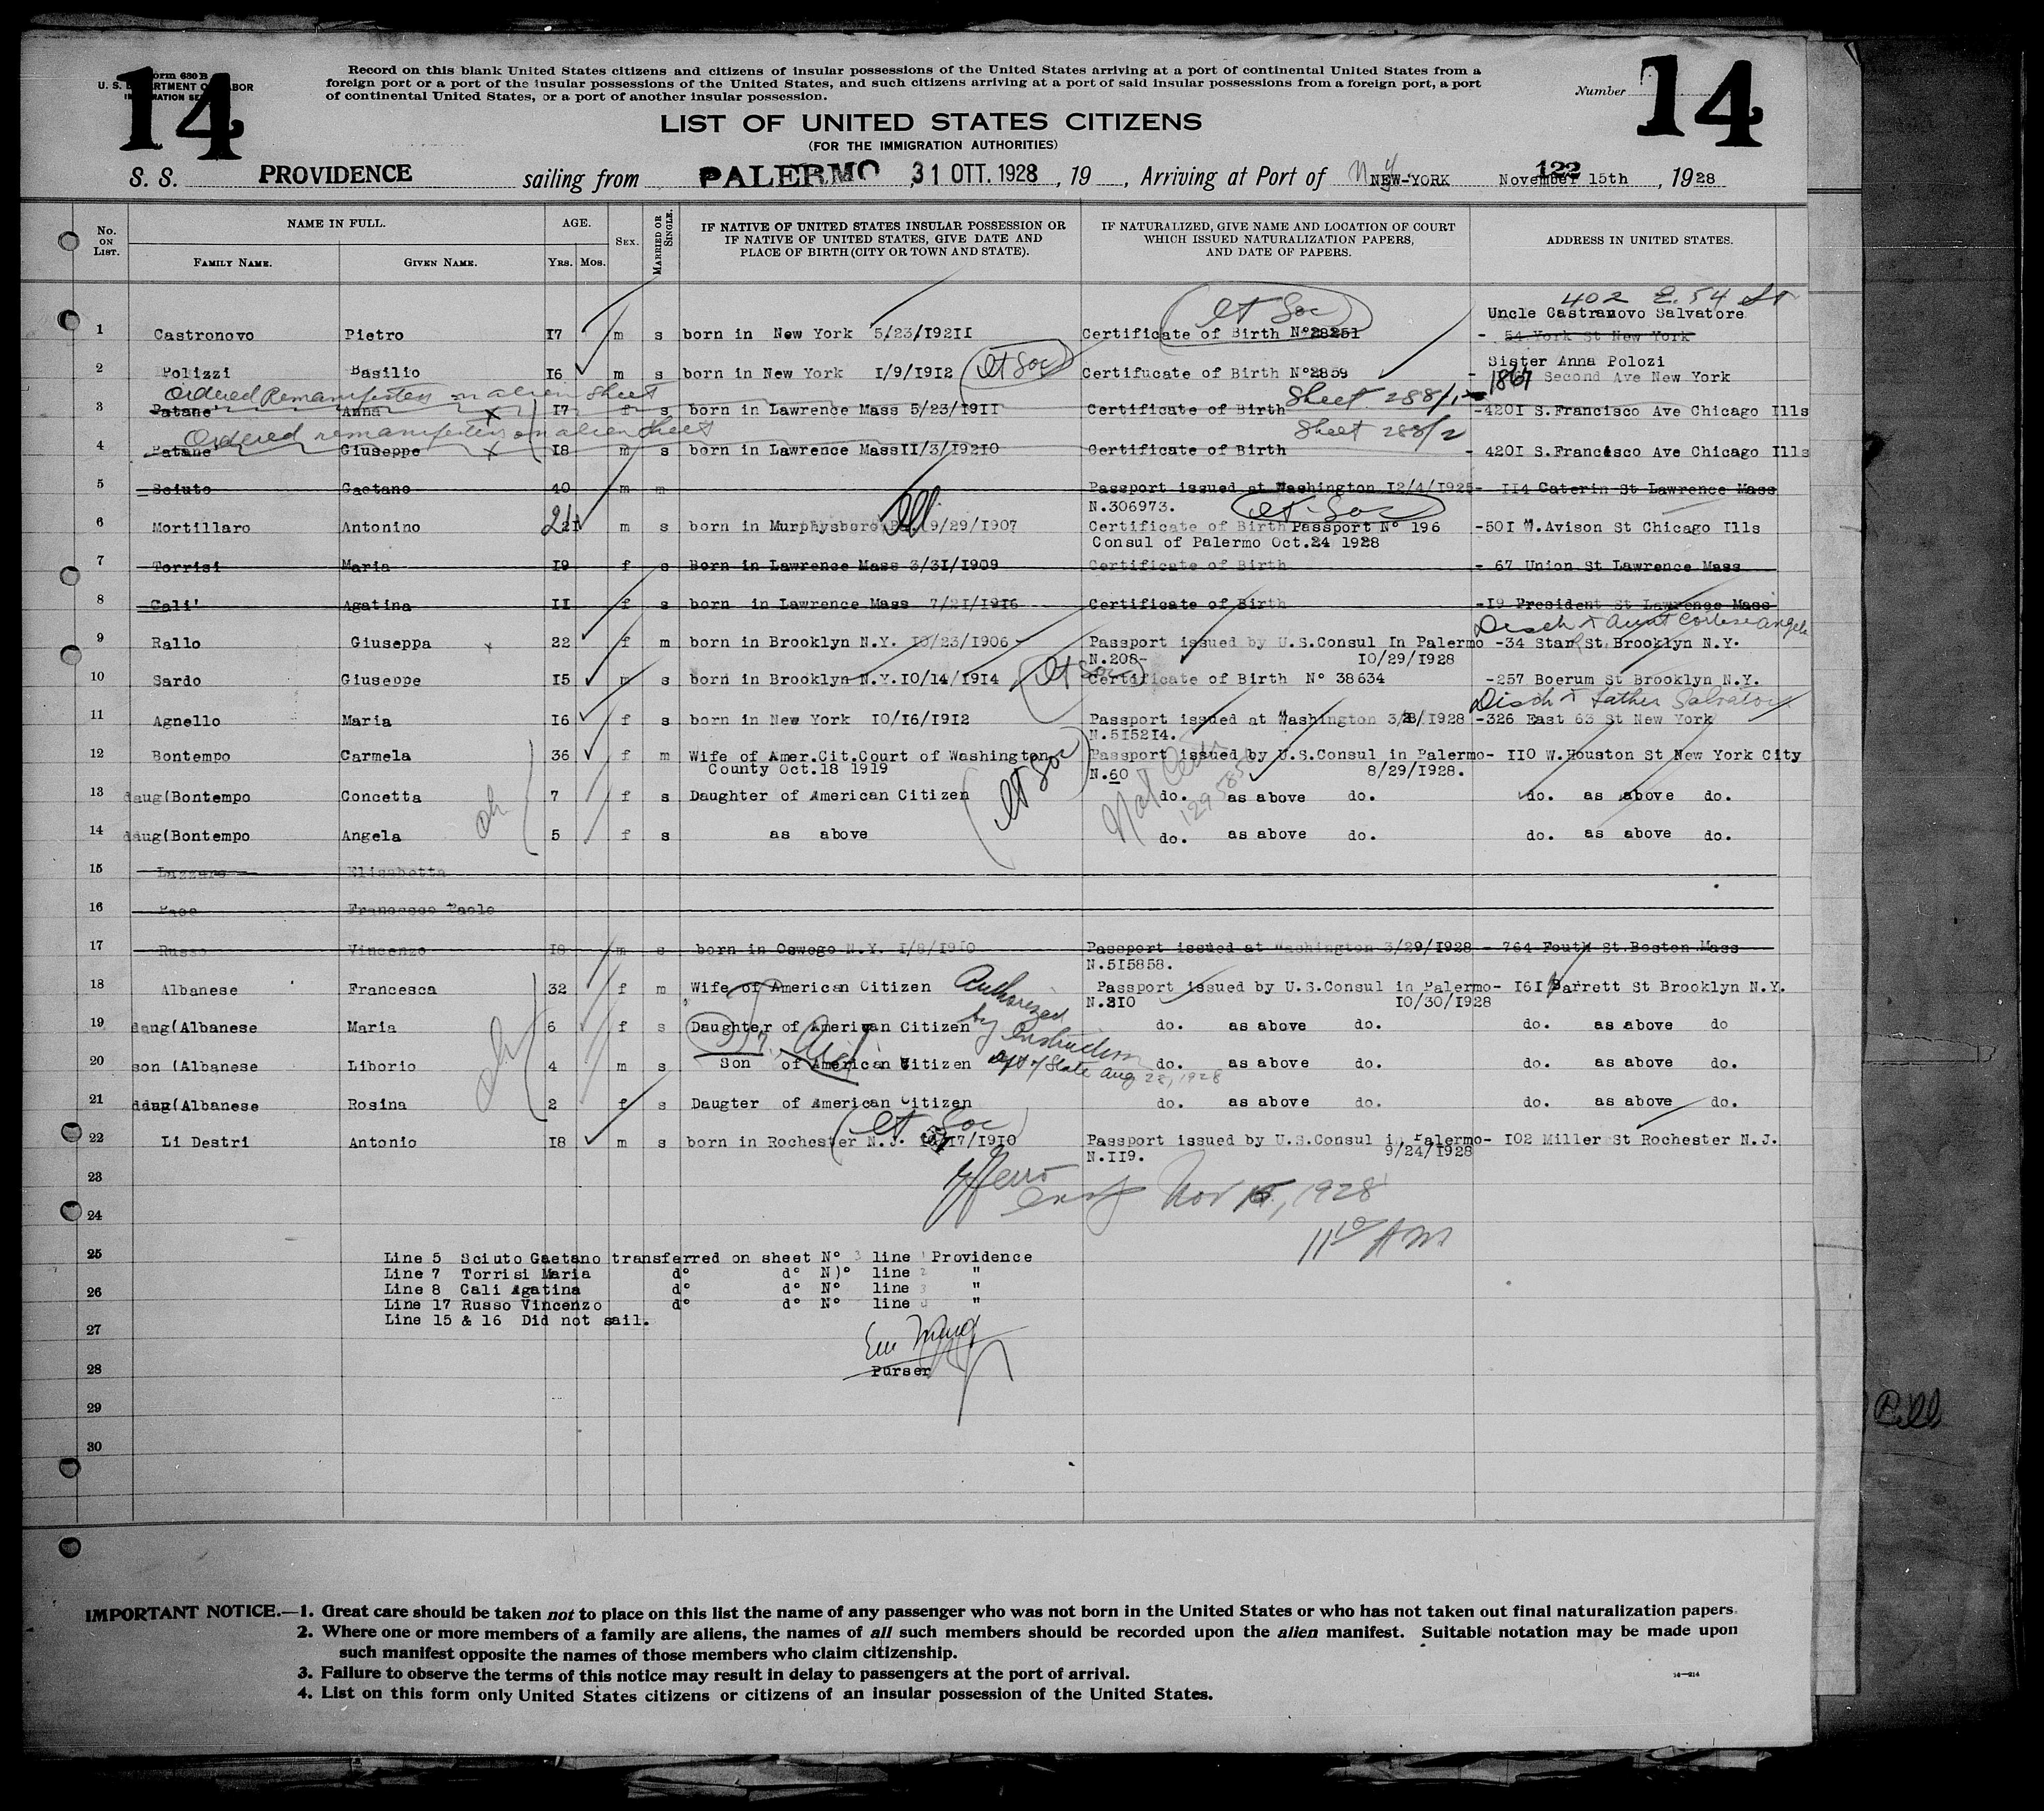 14
Form 630 B
U. S. DEPARTMENT OF LABOR
IMMIGRATION SERVICE
Record on this blank United States citizens and citizens of insular possessions of the United States arriving at a port of continental United States from a
foreign port or a port of the insular possessions of the United States, and such citizens arriving at a port of said insular possessions from a foreign port, a port
of continental United States, or a port of another insular possession.
Number 14
LIST OF UNITED STATES CITIZENS
(FOR THE IMMIGRATION AUTHORITIES)
122
S. S. PROVIDENCE sailing from PALERMO 31 OTT. 1928, 19 , Arriving at Port of NEW-YORK November 15th, 1928
No. ON LIST. NAME IN FULL. FAMILY NAME. GIVEN NAME. AGE. YRS. MOS. SEX. MARRIED OR SINGLE.
IF NATIVE OF UNITED STATES INSULAR POSSESSION OR
IF NATIVE OF UNITED STATES, GIVE DATE AND
PLACE OF BIRTH (CITY OR TOWN AND STATE).
IF NATURALIZED, GIVE NAME AND LOCATION OF COURT
WHICH ISSUED NATURALIZATION PAPERS,
AND DATE OF PAPERS.
ADDRESS IN UNITED STATES.
402 E. 54 St
Uncle Castranovo Salvatore
1 Castronovo Pietro 17 m s born in New York 5/23/19211 Certificate of Birth N°28251 - 54 York St New York
Sister Anna Polozi
2 Polizzi Basilio 16 m s born in New York 1/9/1912 Certifucate of Birth N°2859 - 1867 Second Ave New York
Ordered Remanifested on alien sheet Sheet 288/1
3 Patane' Anna x 17 f s born in Lawrence Mass 5/23/1911 Certificate of Birth -4201 S.Francisco Ave Chicago Ills
Ordered remanifested on alien sheet Sheet 288/2
4 Patane' Giuseppe x 18 m s born in Lawrence Mass11/3/19210 Certificate of Birth - 4201 S.Francisco Ave Chicago Ills
5 Sciuto Gaetano 40 m m Passport issued at Washington 12/4/1925- 114 Caterin St Lawrence Mass
N.306973.
6 Mortillaro Antonino 21 m s born in Murphysboro Ill 9/29/1907 Certificate of Birth Passport N° 196 -501 W.Avison St Chicago Ills
Consul of Palermo Oct.24 1928
7 Torrisi Maria 19 f s Born in Lawrence Mass 3/31/1909 Certificate of Birth - 67 Union St Lawrence Mass
8 Cali' Agatina 11 f s born in Lawrence Mass 7/21/1916 Certificate of Birth -19 President St Lawrence Mass
Disch to Aunt Cortese Angela
9 Rallo Giuseppa x 22 f m born in Brooklyn N.Y. 10/23/1906- Passport issued by U.S.Consul In Palermo -34 Star St Brooklyn N.Y.
N.208- 10/29/1928
10 Sardo Giuseppe 15 m s born in Brooklyn N.Y.10/14/1914 Certificate of Birth N° 38634 -257 Boerum St Brooklyn N.Y.
Disch to Father Salvatore
11 Agnello Maria 16 f s born in New York 10/16/1912 Passport issued at Washington 3/28/1928 -326 East 63 St New York
N.515214.
12 Bontempo Carmela 36 f m Wife of Amer.Cit.Court of Washington Passport issued by U.S.Consul in Palermo- 110 W.Houston St New York City
County Oct.18 1919 N.60 8/29/1928.
13 daug(Bontempo Concetta 7 f s Daughter of American Citizen do. as above do. do. as above do.
14 daug(Bontempo Angela 5 f s as above do. as above do. do. as above do.
15 Lazzara Elisabetta
16 Pace Francesco Paolo
17 Russo Vincenzo 18 m s born in Oswego N.Y. 1/8/1910 Passport issued at Washington 3/29/1928 - 764 Fouth St.Boston Mass
N.515858.
18 Albanese Francesca 32 f m Wife of American Citizen Passport issued by U.S.Consul in Palermo- 161 Barrett St Brooklyn N.Y.
N.310 10/30/1928
19 daug(Albanese Maria 6 f s Daughter of American Citizen do. as above do. do. as above do
Authorized by Instruction Dept of State Aug 28, 1928
20 son (Albanese Liborio 4 m s Son of American Citizen do. as above do. do. as above do.
21 daug(Albanese Rosina 2 f s Daugter of American Citizen do. as above do. do. as above do.
22 Li Destri Antonio 18 m s born in Rochester N.J. 17/1910 Passport issued by U.S.Consul in Palermo- 102 Miller St Rochester N.J.
N.119. 9/24/1928
23
Nov 15, 1928
24
11 10 AM
25 Line 5 Sciuto Gaetano transferred on sheet N° 3 line 1 Providence
Line 7 Torrisi Maria d° d° N)° line 2 "
26 Line 8 Cali Agatina d° d° N° line 3 "
Line 17 Russo Vincenzo d° d° N° line 4 "
Line 15 & 16 Did not sail.
27
28 Purser
29
30
IMPORTANT NOTICE.—1. Great care should be taken not to place on this list the name of any passenger who was not born in the United States or who has not taken out final naturalization papers.
2. Where one or more members of a family are aliens, the names of all such members should be recorded upon the alien manifest. Suitable notation may be made upon
such manifest opposite the names of those members who claim citizenship.
3. Failure to observe the terms of this notice may result in delay to passengers at the port of arrival.
4. List on this form only United States citizens or citizens of an insular possession of the United States.
14—214